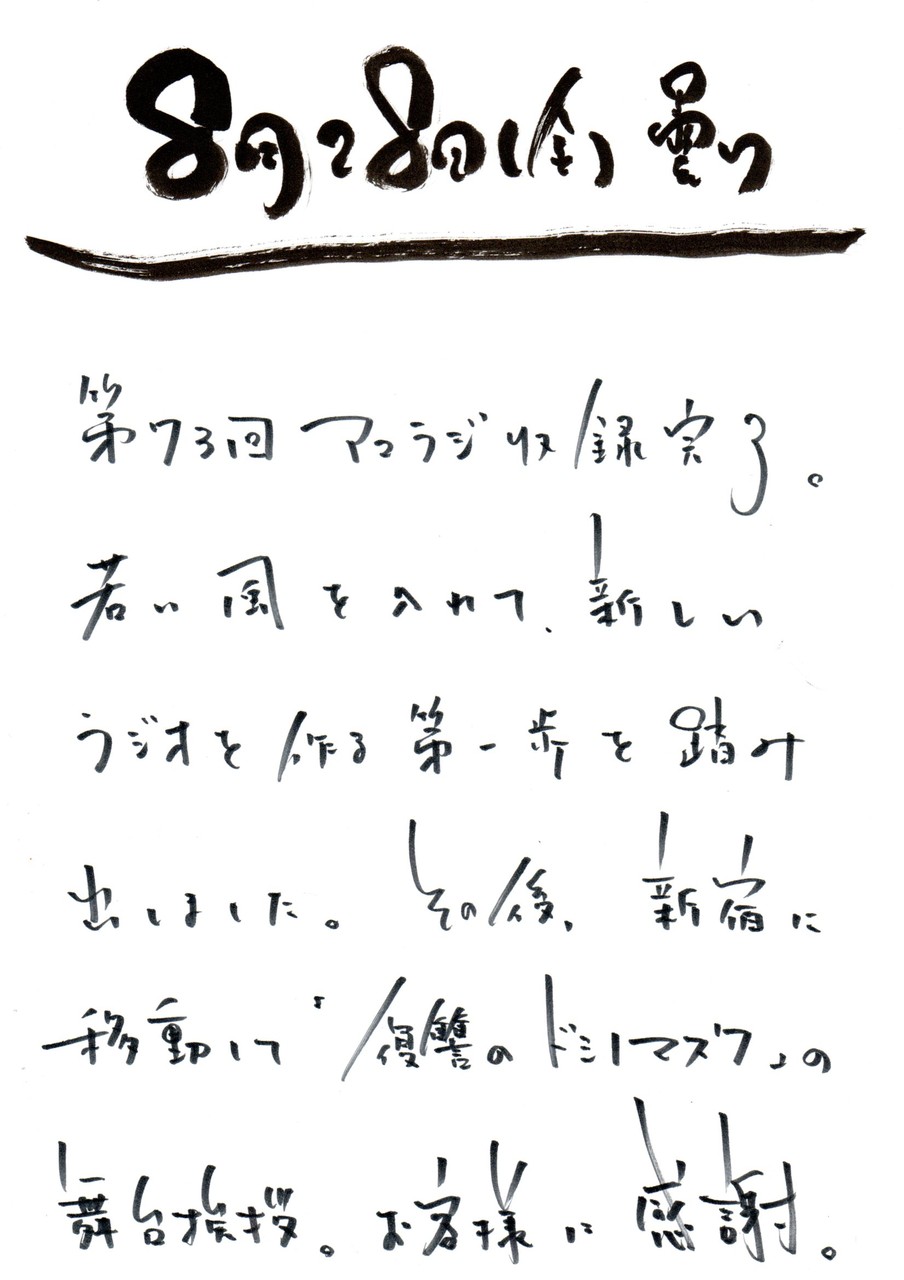 8月28日(金)曇り
第73回アコラジ収録完了。
若い風を入れて、新しい
ラジオを作る第一歩を踏み
出しました。その後、新宿に
移動して『復讐のドミノマスク』の
舞台挨拶。お客様に感謝。